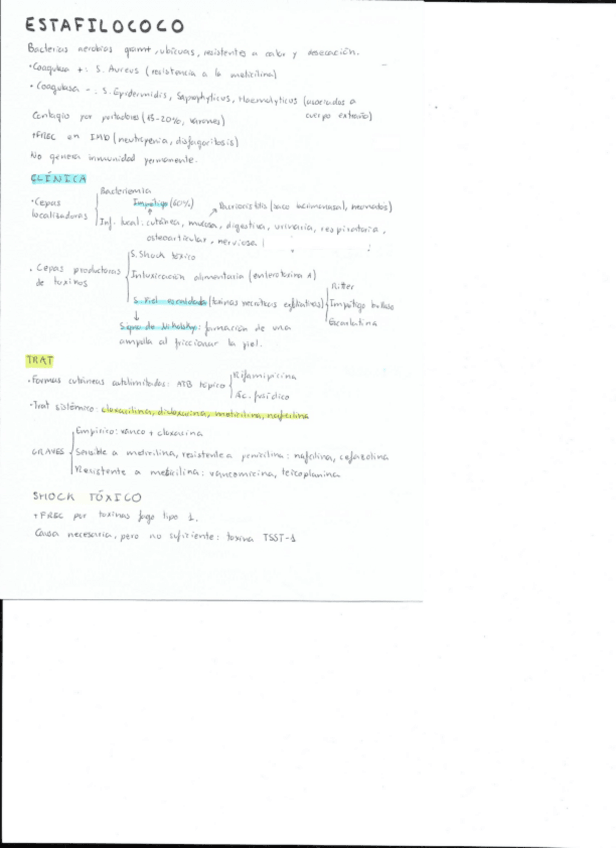 ESTAFILOCOCO
Bacterias aerobias gram+, ubicuas, resistentes a calor y desecación.
· Coagulasa +: S. Aureus (resistencia a la meticilina)
· Coagulasa -: S. Epidermidis, Saprophyticus, Haemolyticus (asociadas a
cuerpo extraño)
Contagio por portadores (15-20%, varones)
+FREC en IMD (neutropenia, disfagocitosis)
No genera inmunidad permanente.
CLÍNICA
Bacteriemia
Impétigo (60%)
Dacriocistitis (saco lacrimonasal, neonatos)
· Cepas
localizadoras
Inf. local: cutánea, mucosa, digestiva, urinaria, respiratoria,
osteoarticular, nerviosa
S. Shock tóxico
· Cepas productoras
de toxinas
Intoxicación alimentaria (enterotoxina A)
S. Piel escaldada (toxinas exfoliativas)
Ritter
Impétigo bulloso
Escarlatina
Signo de Nikolsky: formación de una
ampolla al friccionar la piel.
TRAT
· Formas cutáneas autolimitadas: ATB tópico
Rifamipicina
Ác. fusídico
· Trat sistémico: cloxacilina, dicloxacina, meticilina, nafcilina
GRAVES
Empírico: vanco + cloxacina
Sensible a meticilina, resistente a penicilina: nafcilina, cefazolina
Resistente a meticilina: vancomicina, teicoplanina
SHOCK TÓXICO
+FREC por toxinas fago tipo 1.
Causa necesaria, pero no suficiente: toxina TSST-1